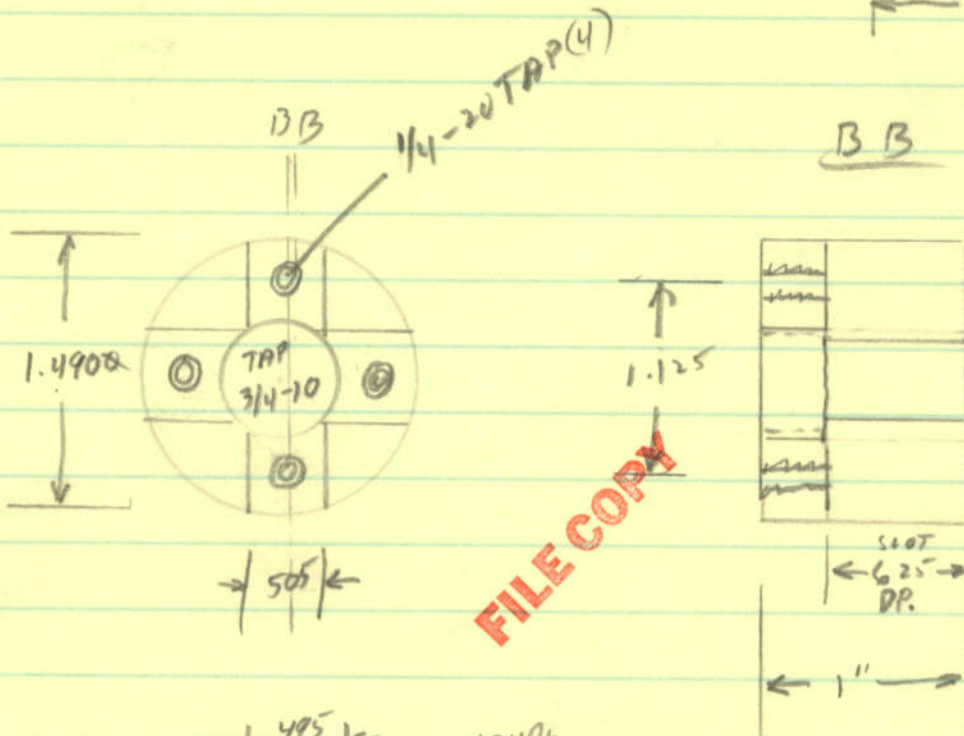 1/4-20 TAP(4)
BB
B B
1.4900
TAP
3/4-10
1.125
FILE COPY
505
SLOT
625
DP.
1"
.495